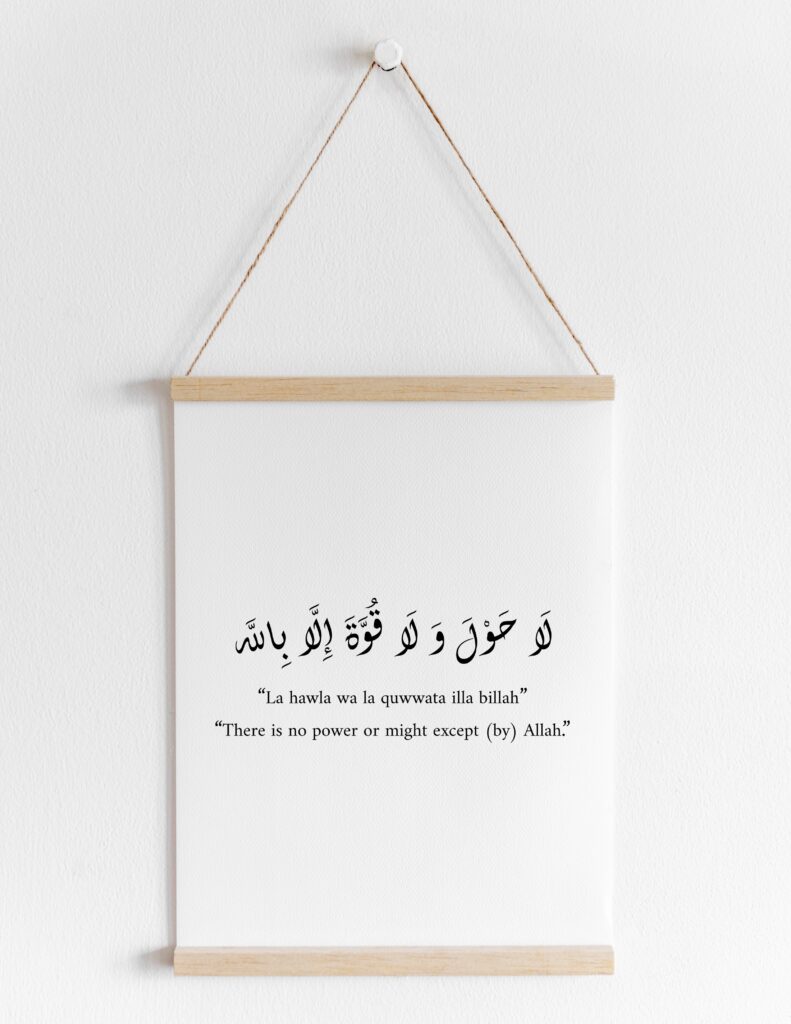 لَا حَوْلَ وَ لَا قُوَّةَ إِلَّا بِاللَّه
“La hawla wa la quwwata illa billah”
“There is no power or might except (by) Allah.”